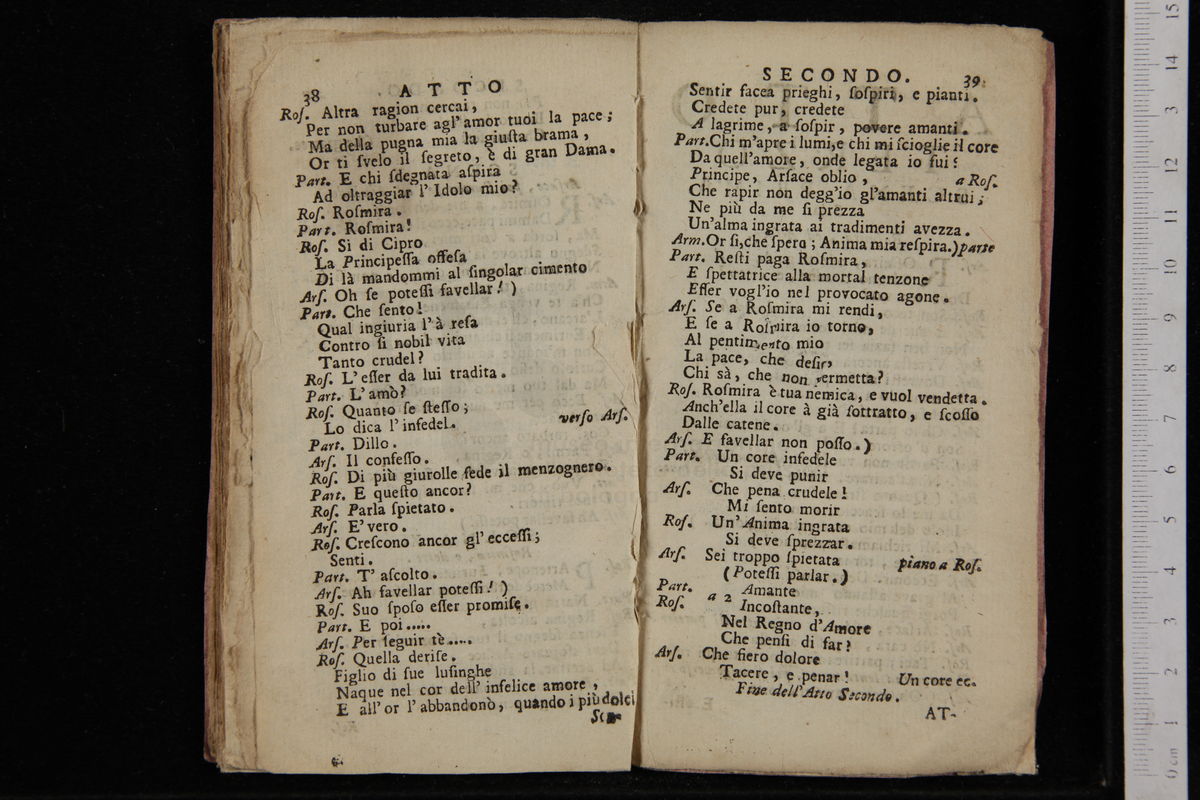 38 ATTO
Roſ. Altra ragion cercai,
Per non turbare agl'amor tuoi la pace;
Ma della pugna mia la giuſta brama,
Or ti ſvelo il ſegreto, è di gran Dama.
Part. E chi ſdegnata aſpira
Ad oltraggiar l'Idolo mio?
Roſ. Roſmira.
Part. Roſmira!
Roſ. Sì di Cipro
La Principeſſa offeſa
Di là mandommi al ſingolar cimento
Arſ. Oh ſe poteſſi favellar!)
Part. Che ſento!
Qual ingiuria l'à reſa
Contro ſi nobil vita
Tanto crudel?
Roſ. L'eſſer da lui tradita.
Part. L'amò?
Roſ. Quanto ſe ſteſſo;
Lo dica l'infedel. verſo Arſ.
Part. Dillo.
Arſ. Il confeſſo.
Roſ. Di più giurolle fede il menzognero.
Part. E queſto ancor?
Roſ. Parla ſpietato.
Arſ. E' vero.
Roſ. Creſcono ancor gl'ecceſſi;
Senti.
Part. T'aſcolto.
Arſ. Ah favellar poteſſi!)
Roſ. Suo ſpoſo eſſer promiſe.
Part. E poi.....
Arſ. Per ſeguir tè.....
Roſ. Quella deriſe.
Figlio di ſue luſinghe
Naque nel cor dell'infelice amore,
E all'or l'abbandonò, quando i più dolci
Sen-
SECONDO. 39
Sentir facea prieghi, ſoſpiri, e pianti.
Credete pur, credete
A lagrime, a ſoſpir, povere amanti.
Part. Chi m'apre i lumi, e chi mi ſcioglie il core
Da quell'amore, onde legata io fui?
Principe, Arſace oblio, a Roſ.
Che rapir non degg'io gl'amanti altrui;
Ne più da me ſi prezza
Un'alma ingrata ai tradimenti avezza.
Arm. Or ſi, che ſpero; Anima mia reſpira.) parte
Part. Reſti paga Roſmira,
E ſpettatrice alla mortal tenzone
Eſſer vogl'io nel provocato agone.
Arſ. Se a Roſmira mi rendi,
E ſe a Roſmira io torno,
Al pentimento mio
La pace, che deſir,
Chi sà, che non permetta?
Roſ. Roſmira è tua nemica, e vuol vendetta.
Anch'ella il core à già ſottratto, e ſcoſſo
Dalle catene.
Arſ. E favellar non poſſo.)
Part. Un core infedele
Si deve punir
Arſ. Che pena crudele!
Mi ſento morir
Roſ. Un'Anima ingrata
Si deve ſprezzar.
Arſ. Sei troppo ſpietata piano a Roſ.
(Poteſſi parlar.)
Part. Amante
a 2
Roſ. Incoſtante,
Nel Regno d'Amore
Che penſi di far?
Arſ. Che fiero dolore
Tacere, e penar! Un core ec.
Fine dell'Atto Secondo.
AT-
0 cm 1 2 3 4 5 6 7 8 9 10 11 12 13 14 15